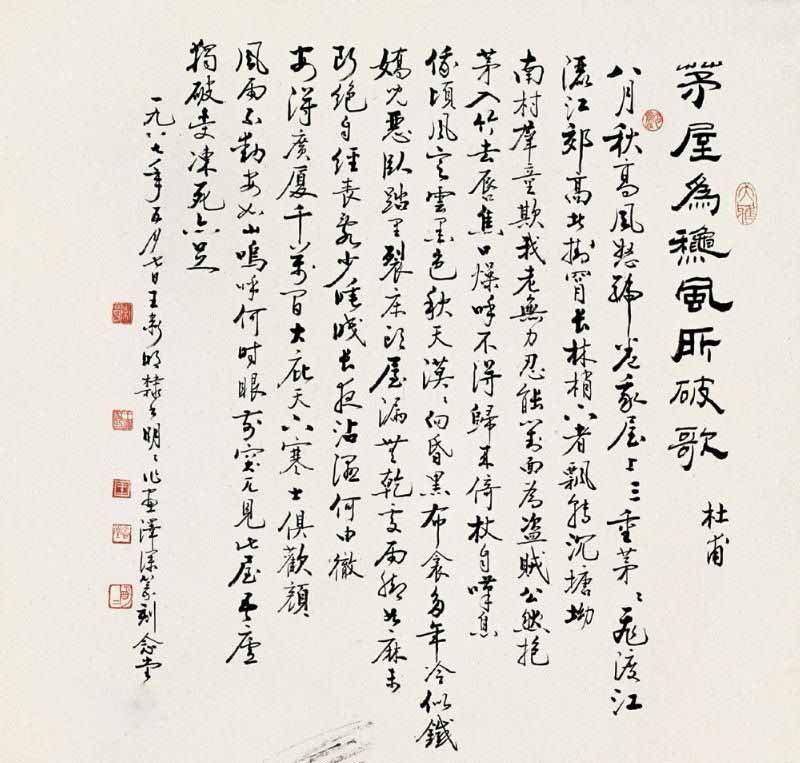 茅屋為龝風所破歌
杜甫
八月秋高風怒號卷我屋上三重茅々飛渡江
灑江郊高者掛罥長林梢下者飄轉沉塘坳
南村羣童欺我老無力忍能對面為盜賊公然抱
茅入竹去唇焦口燥呼不得歸來倚杖自嘆息
俄頃風定雲墨色秋天漠々向昏黑布衾多年冷似鐵
嬌兒惡臥踏里裂床頭屋漏無乾處雨腳如麻未
斷絕自經喪亂少睡眠長夜沾濕何由徹
安得廣厦千萬間大庇天下寒士俱歡顏
風雨不動安如山嗚呼何時眼前突兀見此屋吾廬
獨破受凍死亦足
一九八七年五月七日王新明隸書明々作畫澤深篆刻念堂